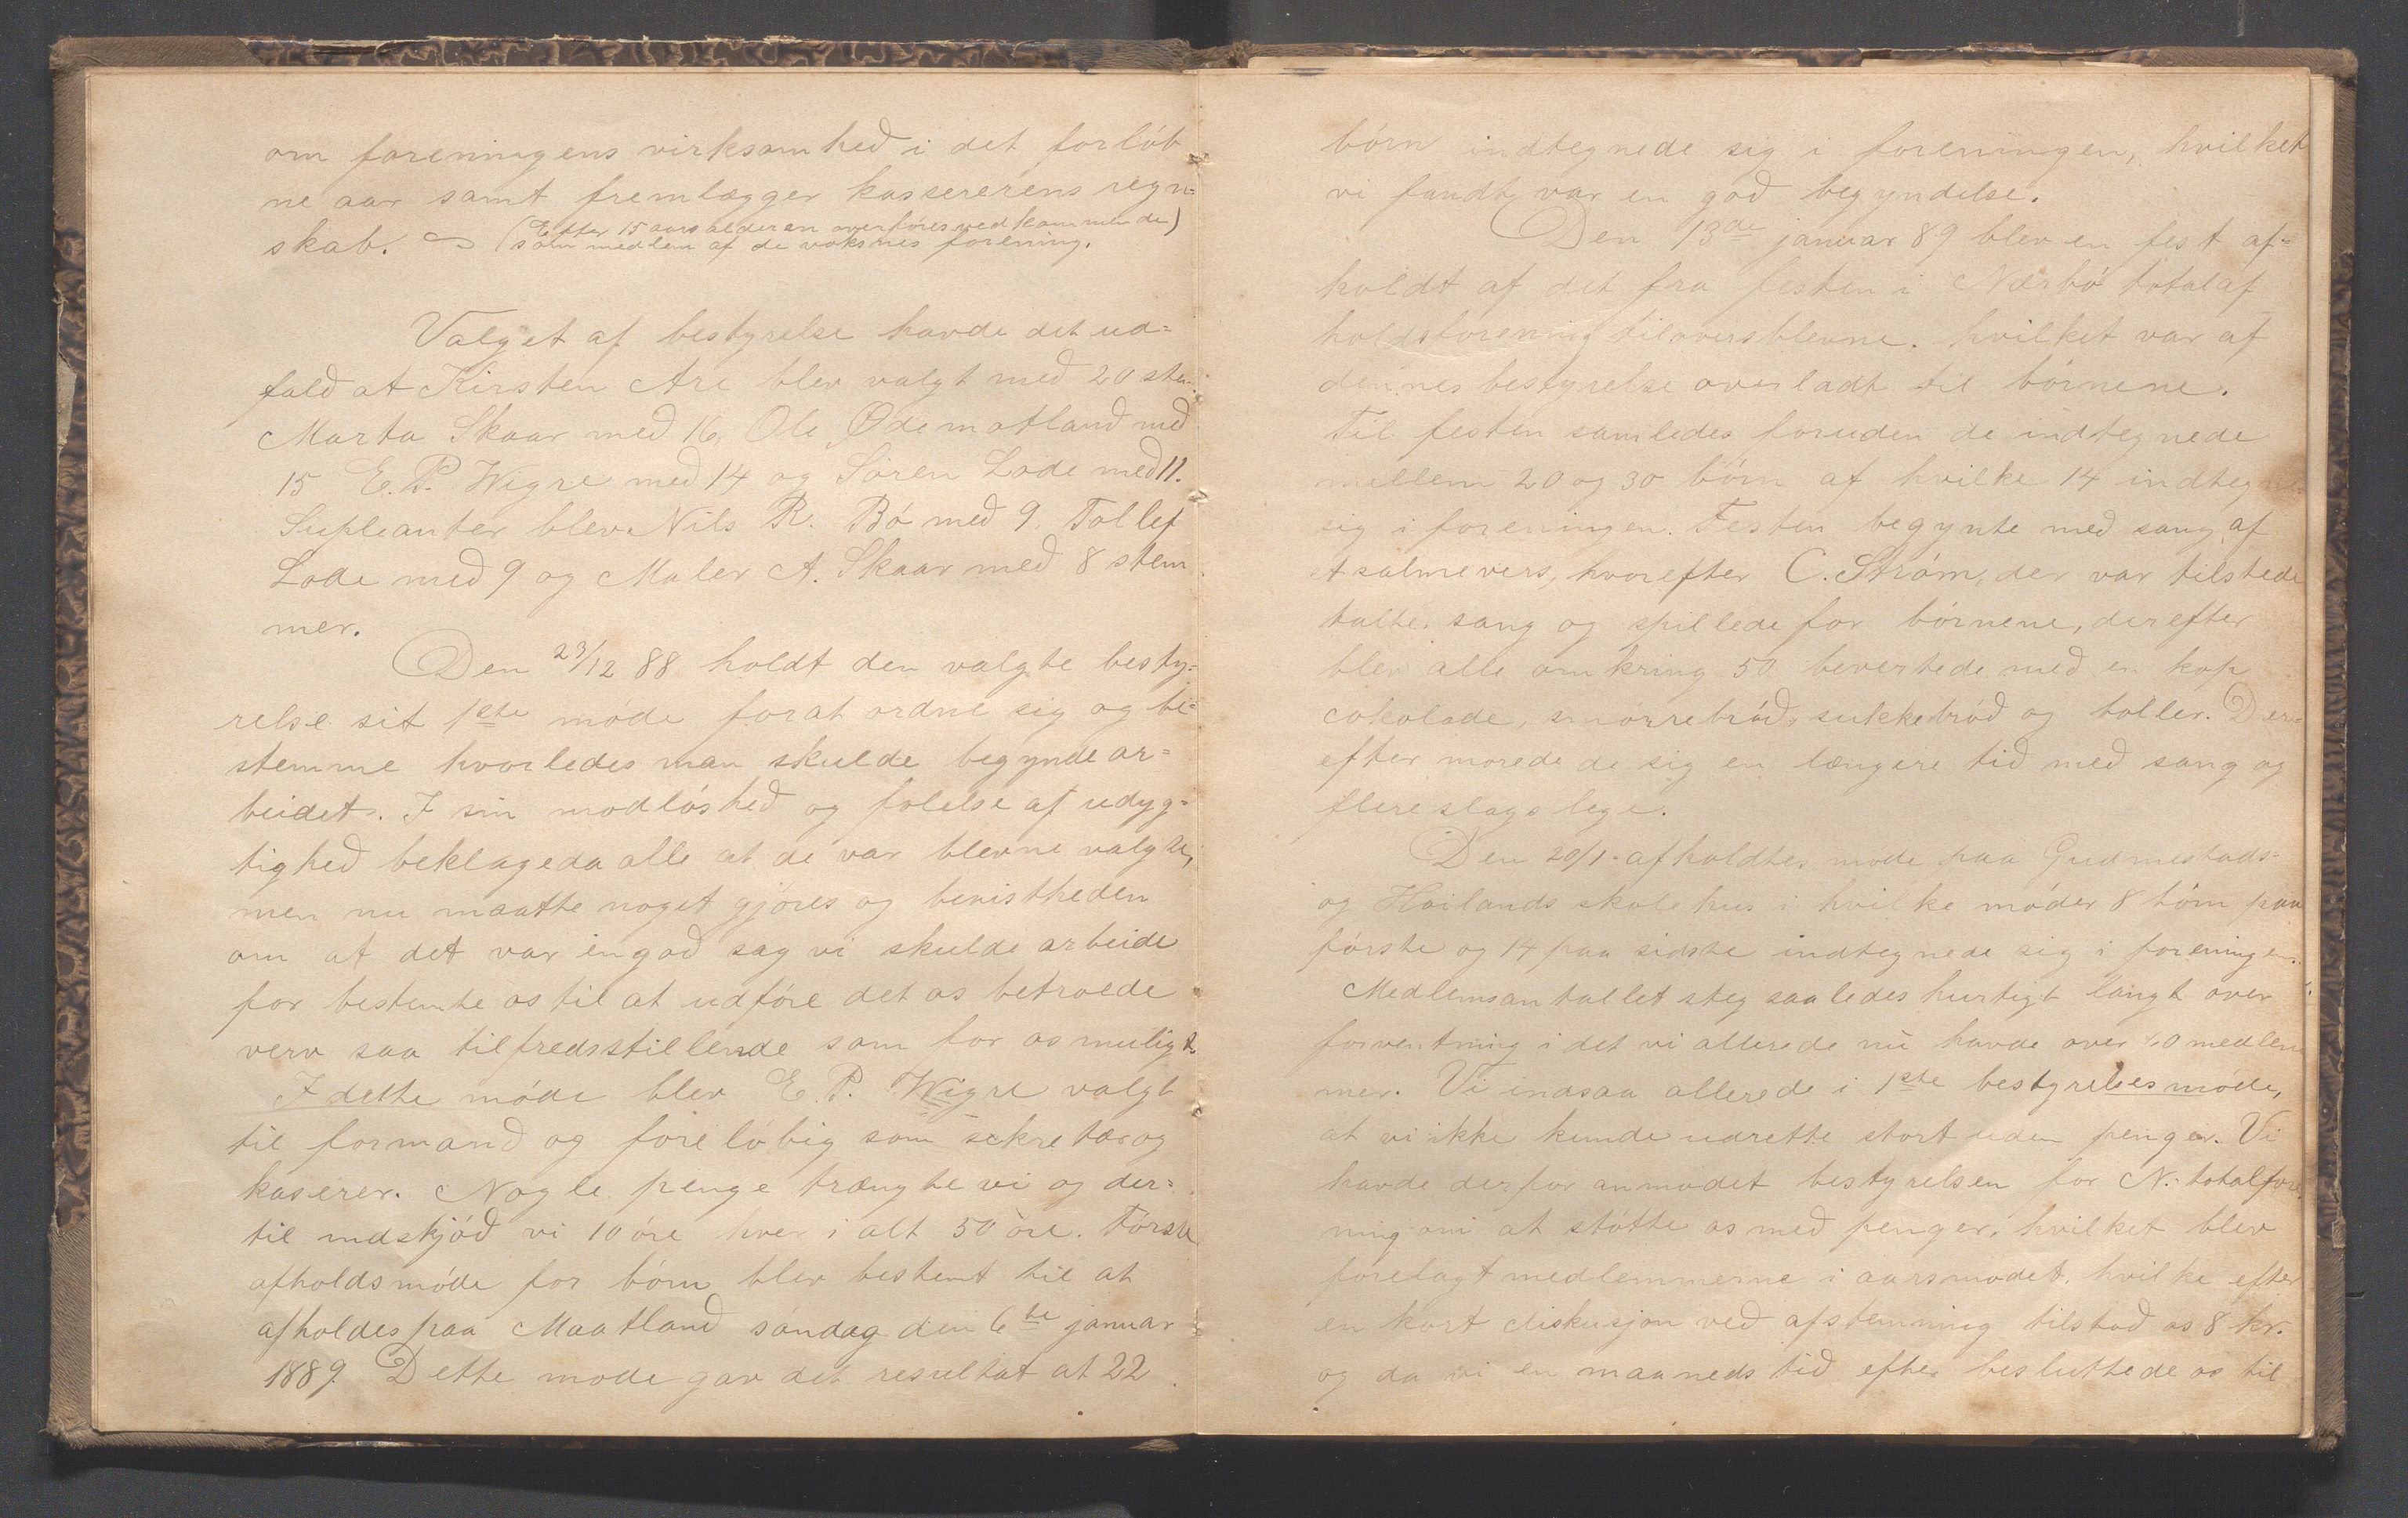 om foreningens virksomhed i det forløb-
ne aar samt fremlægger kassererens regn=
skab. (Efter 15 aars alderen overføres vedkommende)
som medlem af de voksnes forening.
Valget af bestyrelse havde det ud=
fald at Kirsten Are blev valgt med 20 ste.
Marta Skaar med 16, Ole Ødemotland med
15 E. P. Wigre med 14 og Sören Lode med 11.
Supleanter blev Nils R. Bó med 9. Tollef
Lode med 9 og Maler A. Skaar med 8 stem
mer.
Den 23/12 88 holdt den valgte besty=
relse sit 1ste móde forat ordne sig og be=
stemme hvorledes man skulde begynde ar=
beidet. I sin modlóshed og folelse af udyg=
tighed beklageda alle at de var blevne valgte,
men nu maatte noget gjóres og bevistheden
om at det var en god sag vi skulde arbeide
for bestemte os til at udfóre det os betroede
verv saa tilfredsstillende som for os muligt
I dette móde blev E. P. Wigre valgt
til formand og foreló́big som sekretær og
kaserer. Nogle penge trængte vi og der=
til indskjód vi 10 óre hver i alt 50 óre. Fórste
afholdsmóde for börn blev bestemt til at
afholdes paa Maatland sóndag den 6te januar
1889. Dette mode gav det resultat at 22
bórn indtegnede sig i foreningen, hvilket
vi fandt var en god begyndelse.
Den 13de januar 89 blev en fest af=
holdt af det fra festen i Nærbó totalaf
holdsforening tiloversblevne. hvilket var af
dennes bestyrelse overladt til bórnene.
Til festen samledes foruden de indtegnede
mellem 20 og 30 bórn af hvilke 14 indtegnede
sig i foreningen. Festen begynte med sang af
et salmevers, hvorefter C. Stróm, der var tilstede
talte, sang og spillede for bórnene, derefter
blev alle omkring 50 bevertede med en kop
cokolade, smorrebród, sukkebród og boller. Der=
efter morede de sig en længere tid med sang og
flereslags lege.
Den 20/1. afholdtes mode paa Gudmestads=
og Hoilands skolehus i hvilke móder 8 bórn paa
fórste og 14 paa sidste indtegnede sig i foreningen.
Medlemsantallet steg saaledes hurtigt langt over
forventning i det vi allerede nu havde over 40 medlem
mer. Vi indsaa allerede i 1ste bestyrelsesmóde,
at vi ikke kunde udrette stort uden penger. Vi
havde derfor anmodet bestyrelsen for N. totalfore
ning om at stótte os med penger, hvilket blev
forelagt medlemmerne i aarsmodet, hvilke efter
en kort diskusjon ved afstemning tilstod os 8 kr.
og da vi en maaneds tid efter besluttede os til